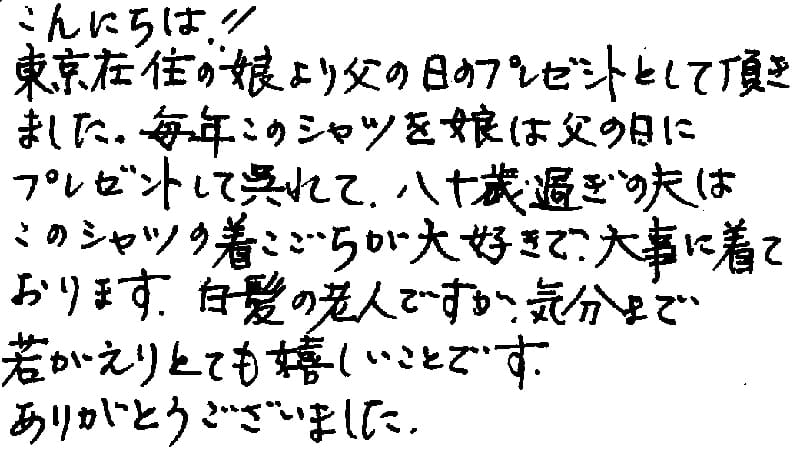 こんにちは!!
東京在住の娘より父の日のプレゼントとして頂き
ました。毎年このシャツを娘は父の日に
プレゼントして呉れて、八十歳過ぎの夫は
このシャツの着こごちが大好きで、大事に着て
おります。白髪の老人ですが、気分まで
若がえりとても嬉しいことです。
ありがとうございました。